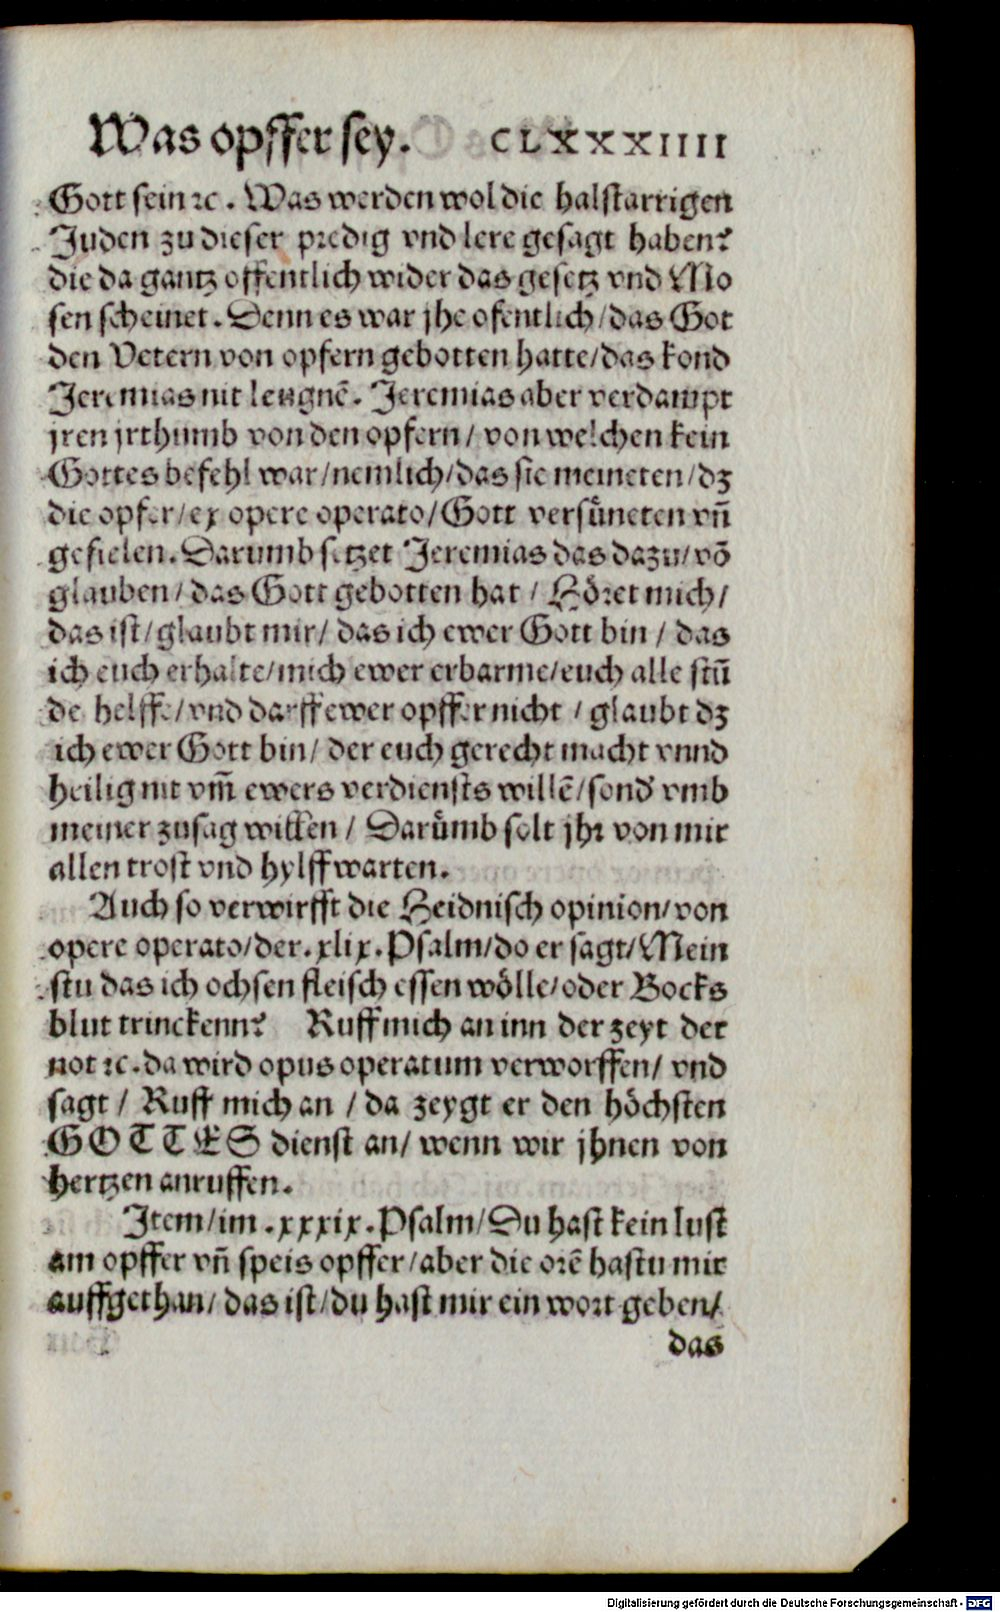 Was opffer sey. CLXXXIIII
Gott sein ꝛc. Was werden wol die halstarrigen
Juden zu dieser predig vnd lere gesagt haben?
die da gantz offentlich wider das gesetz vnd Mo
sen scheinet. Denn es war jhe ofentlich/das Got
den Vetern von opfern gebotten hatte/das kond
Jeremias nit leugnẽ. Jeremias aber verdampt
jren jrthumb von den opfern/ von welchen kein
Gottes befehl war/nemlich/das sie meineten/dz
die opfer/ex opere operato/Gott versůneten vñ
gefielen. Darumb setzet Jeremias das dazu/võ
glauben/das Gott gebotten hat / Höret mich/
das ist/glaubt mir/ das ich ewer Gott bin / das
ich euch erhalte/mich ewer erbarme/euch alle stũ
de helffe/vnd darff ewer opffer nicht / glaubt dz
ich ewer Gott bin/ der euch gerecht macht vnnd
heilig nit vm̃ ewers verdiensts willẽ/sond̕ vmb
meiner zusag willen / Darůmb solt jhr von mir
allen trost vnd hylff warten.
Auch so verwirfft die Heidnisch opinion/von
opere operato/der.xlix.Psalm/do er sagt/Mein
stu das ich ochsen fleisch essen wölle/oder Bocks
blut trinckenn? Ruff mich an inn der zeyt der
not ꝛc.da wird opus operatum verworffen/ vnd
sagt / Ruff mich an / da zeygt er den höchsten
GOTTES dienst an/ wenn wir jhnen von
hertzen anruffen.
Item/im .xxxix.Psalm/Du hast kein lust
am opffer vñ speis opffer/aber die orẽ hastu mir
auffgethan/ das ist/du hast mir ein wort geben/
das
Digitalisierung gefördert durch die Deutsche Forschungsgemeinschaft - DFG